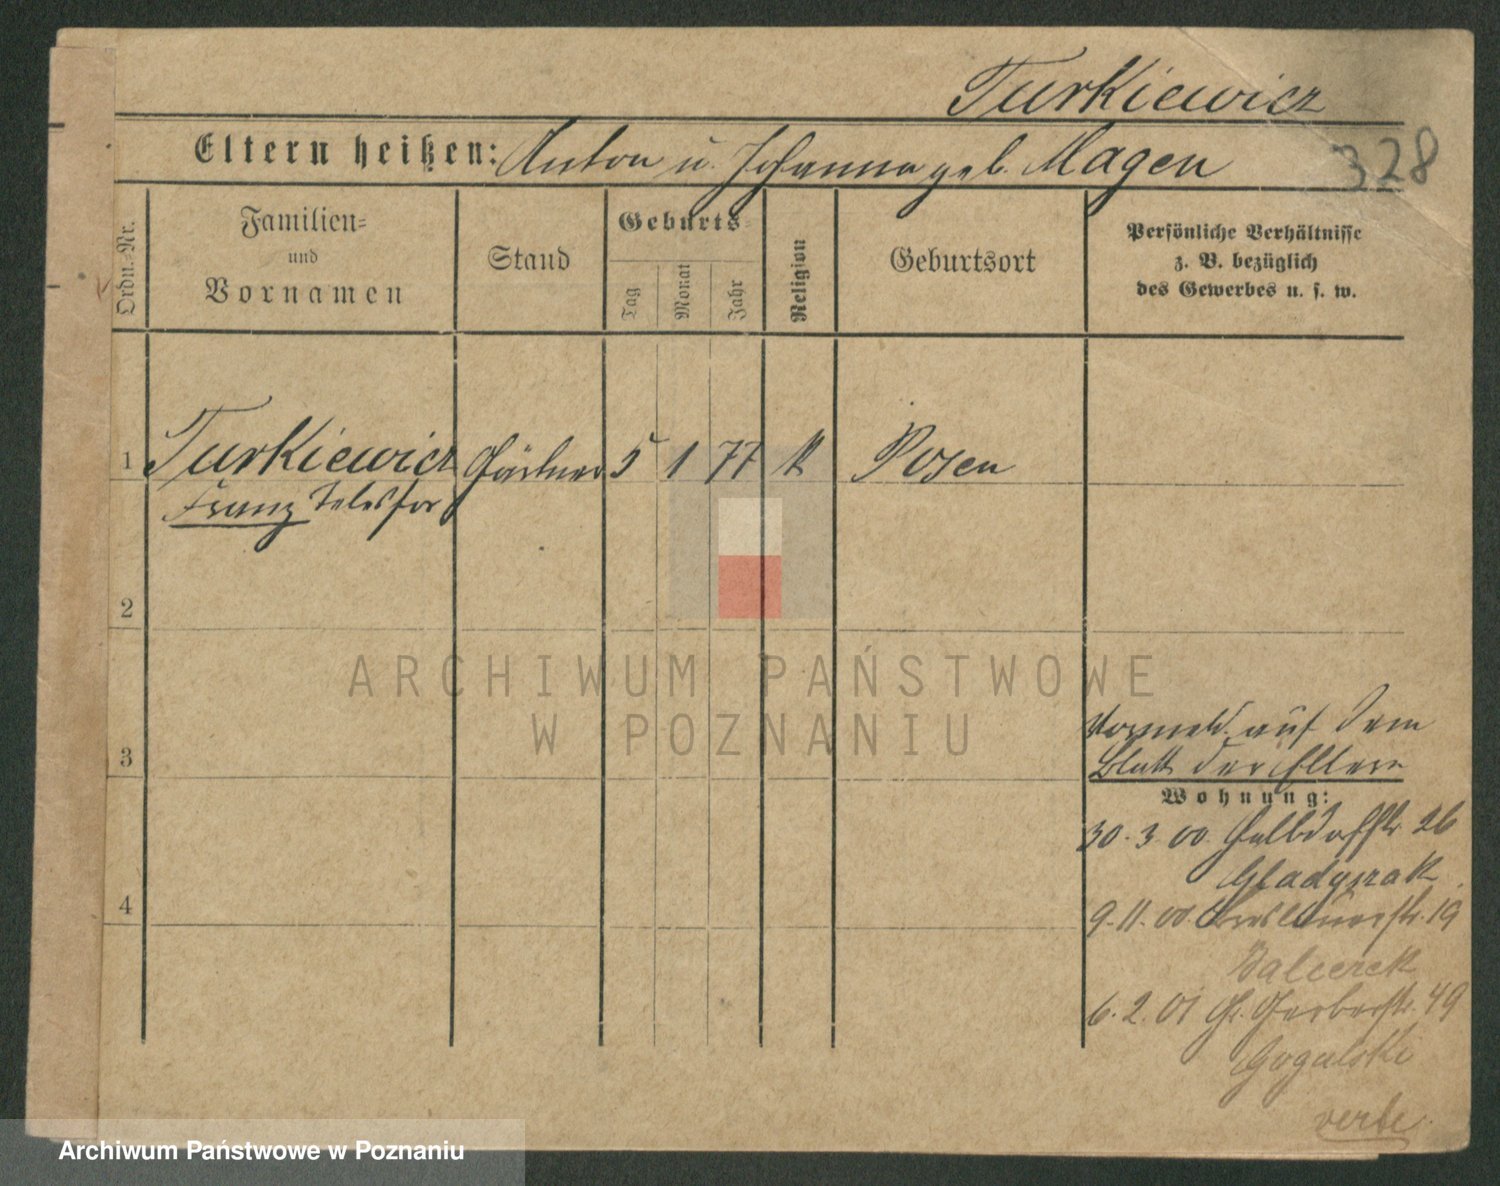 Turkiewicz
Eltern heißen: Anton u. Johanna geb. Magen
328
Ordn.-Nr.
Familien-
und
Vornamen
Stand
Geburts-
Tag
Monat
Jahr
Religion
Geburtsort
Persönliche Verhältnisse
z. B. bezüglich
des Gewerbes u. s. w.
1 Turkiewicz Gärtner 5 1 77 k Posen
Franz Telesfor
2
ARCHIWUM PAŃSTWOWE
W POZNANIU
3
Vormeld. auf dem
Blatt der Eltern
Wohnung:
30.3.00. Halbdorfstr. 26
Gladyszak
4
9.11.00. Breslauerstr. 19
Balcerek
6.2.01 Gr. Gerberstr. 49
Gogulski
verte
Archiwum Państwowe w Poznaniu